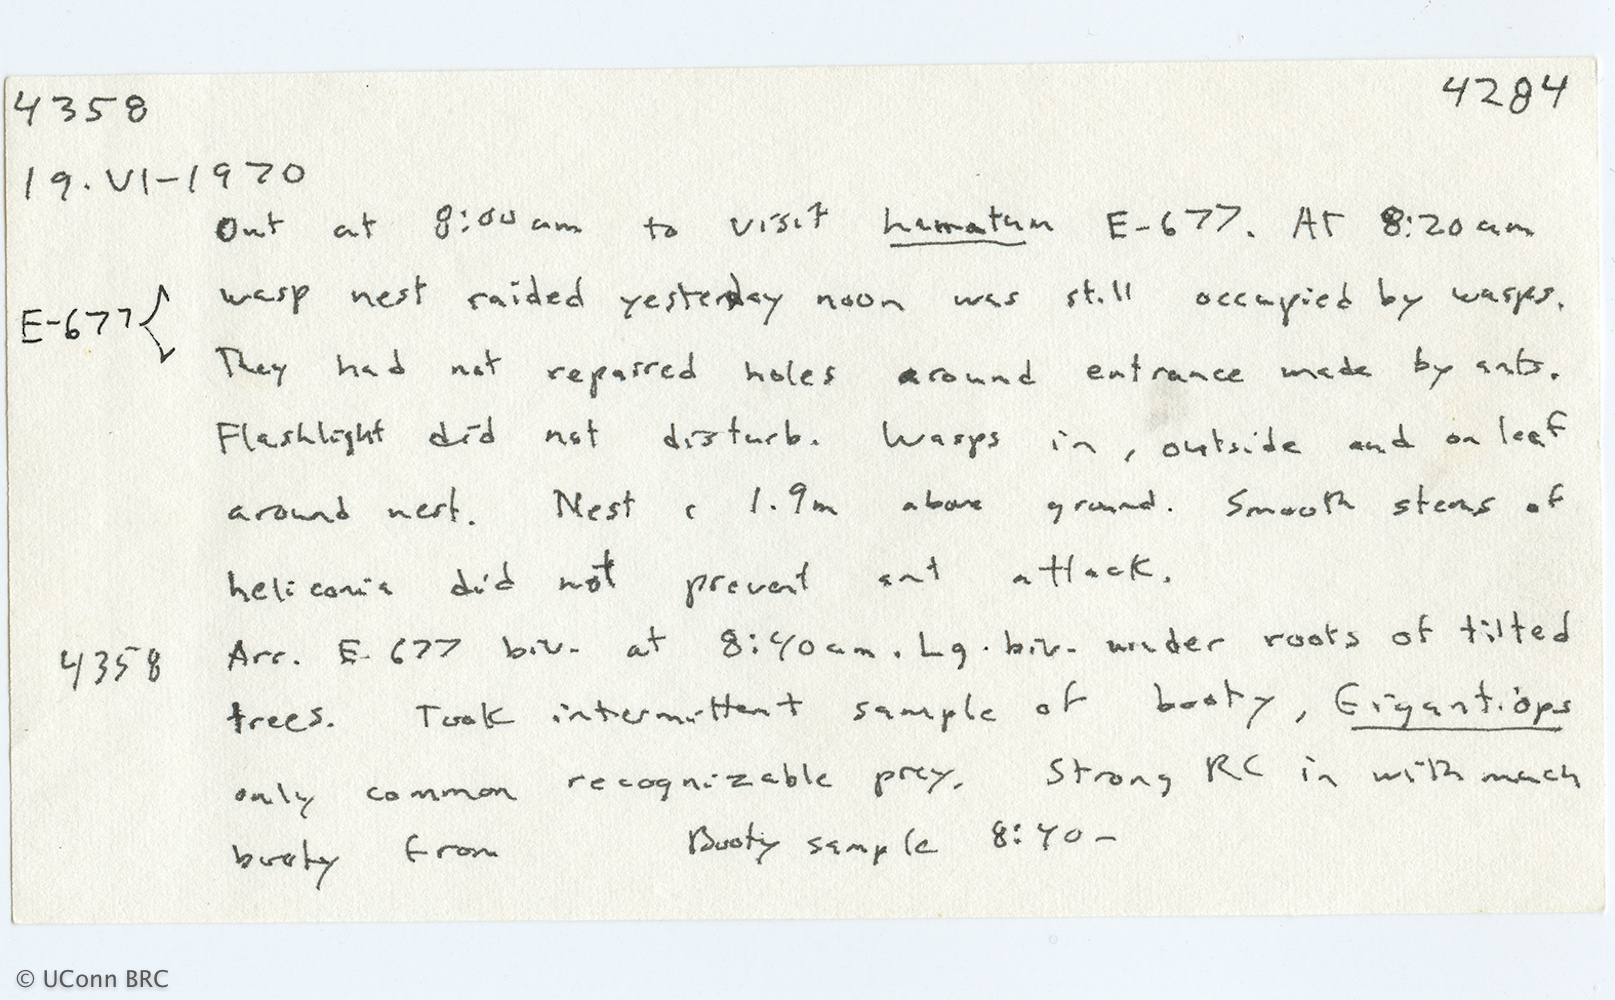 4358 4284
19.VI-1970
Out at 8:00am to visit hamatum E-677. At 8:20am
E-677 wasp nest raided yesterday noon was still occupied by wasps.
They had not repaired holes around entrance made by ants.
Flashlight did not disturb. Wasps in, outside and on leaf
around nest. Nest c 1.9m above ground. Smooth stems of
heliconia did not prevent ant attack.
4358 Arr. E-677 biv. at 8:40am. Lg. biv. under roots of tilted
trees. Took intermittent sample of booty, Gigantiops
only common recognizable prey. Strong RC in with much
booty from Booty sample 8:40-
© UConn BRC